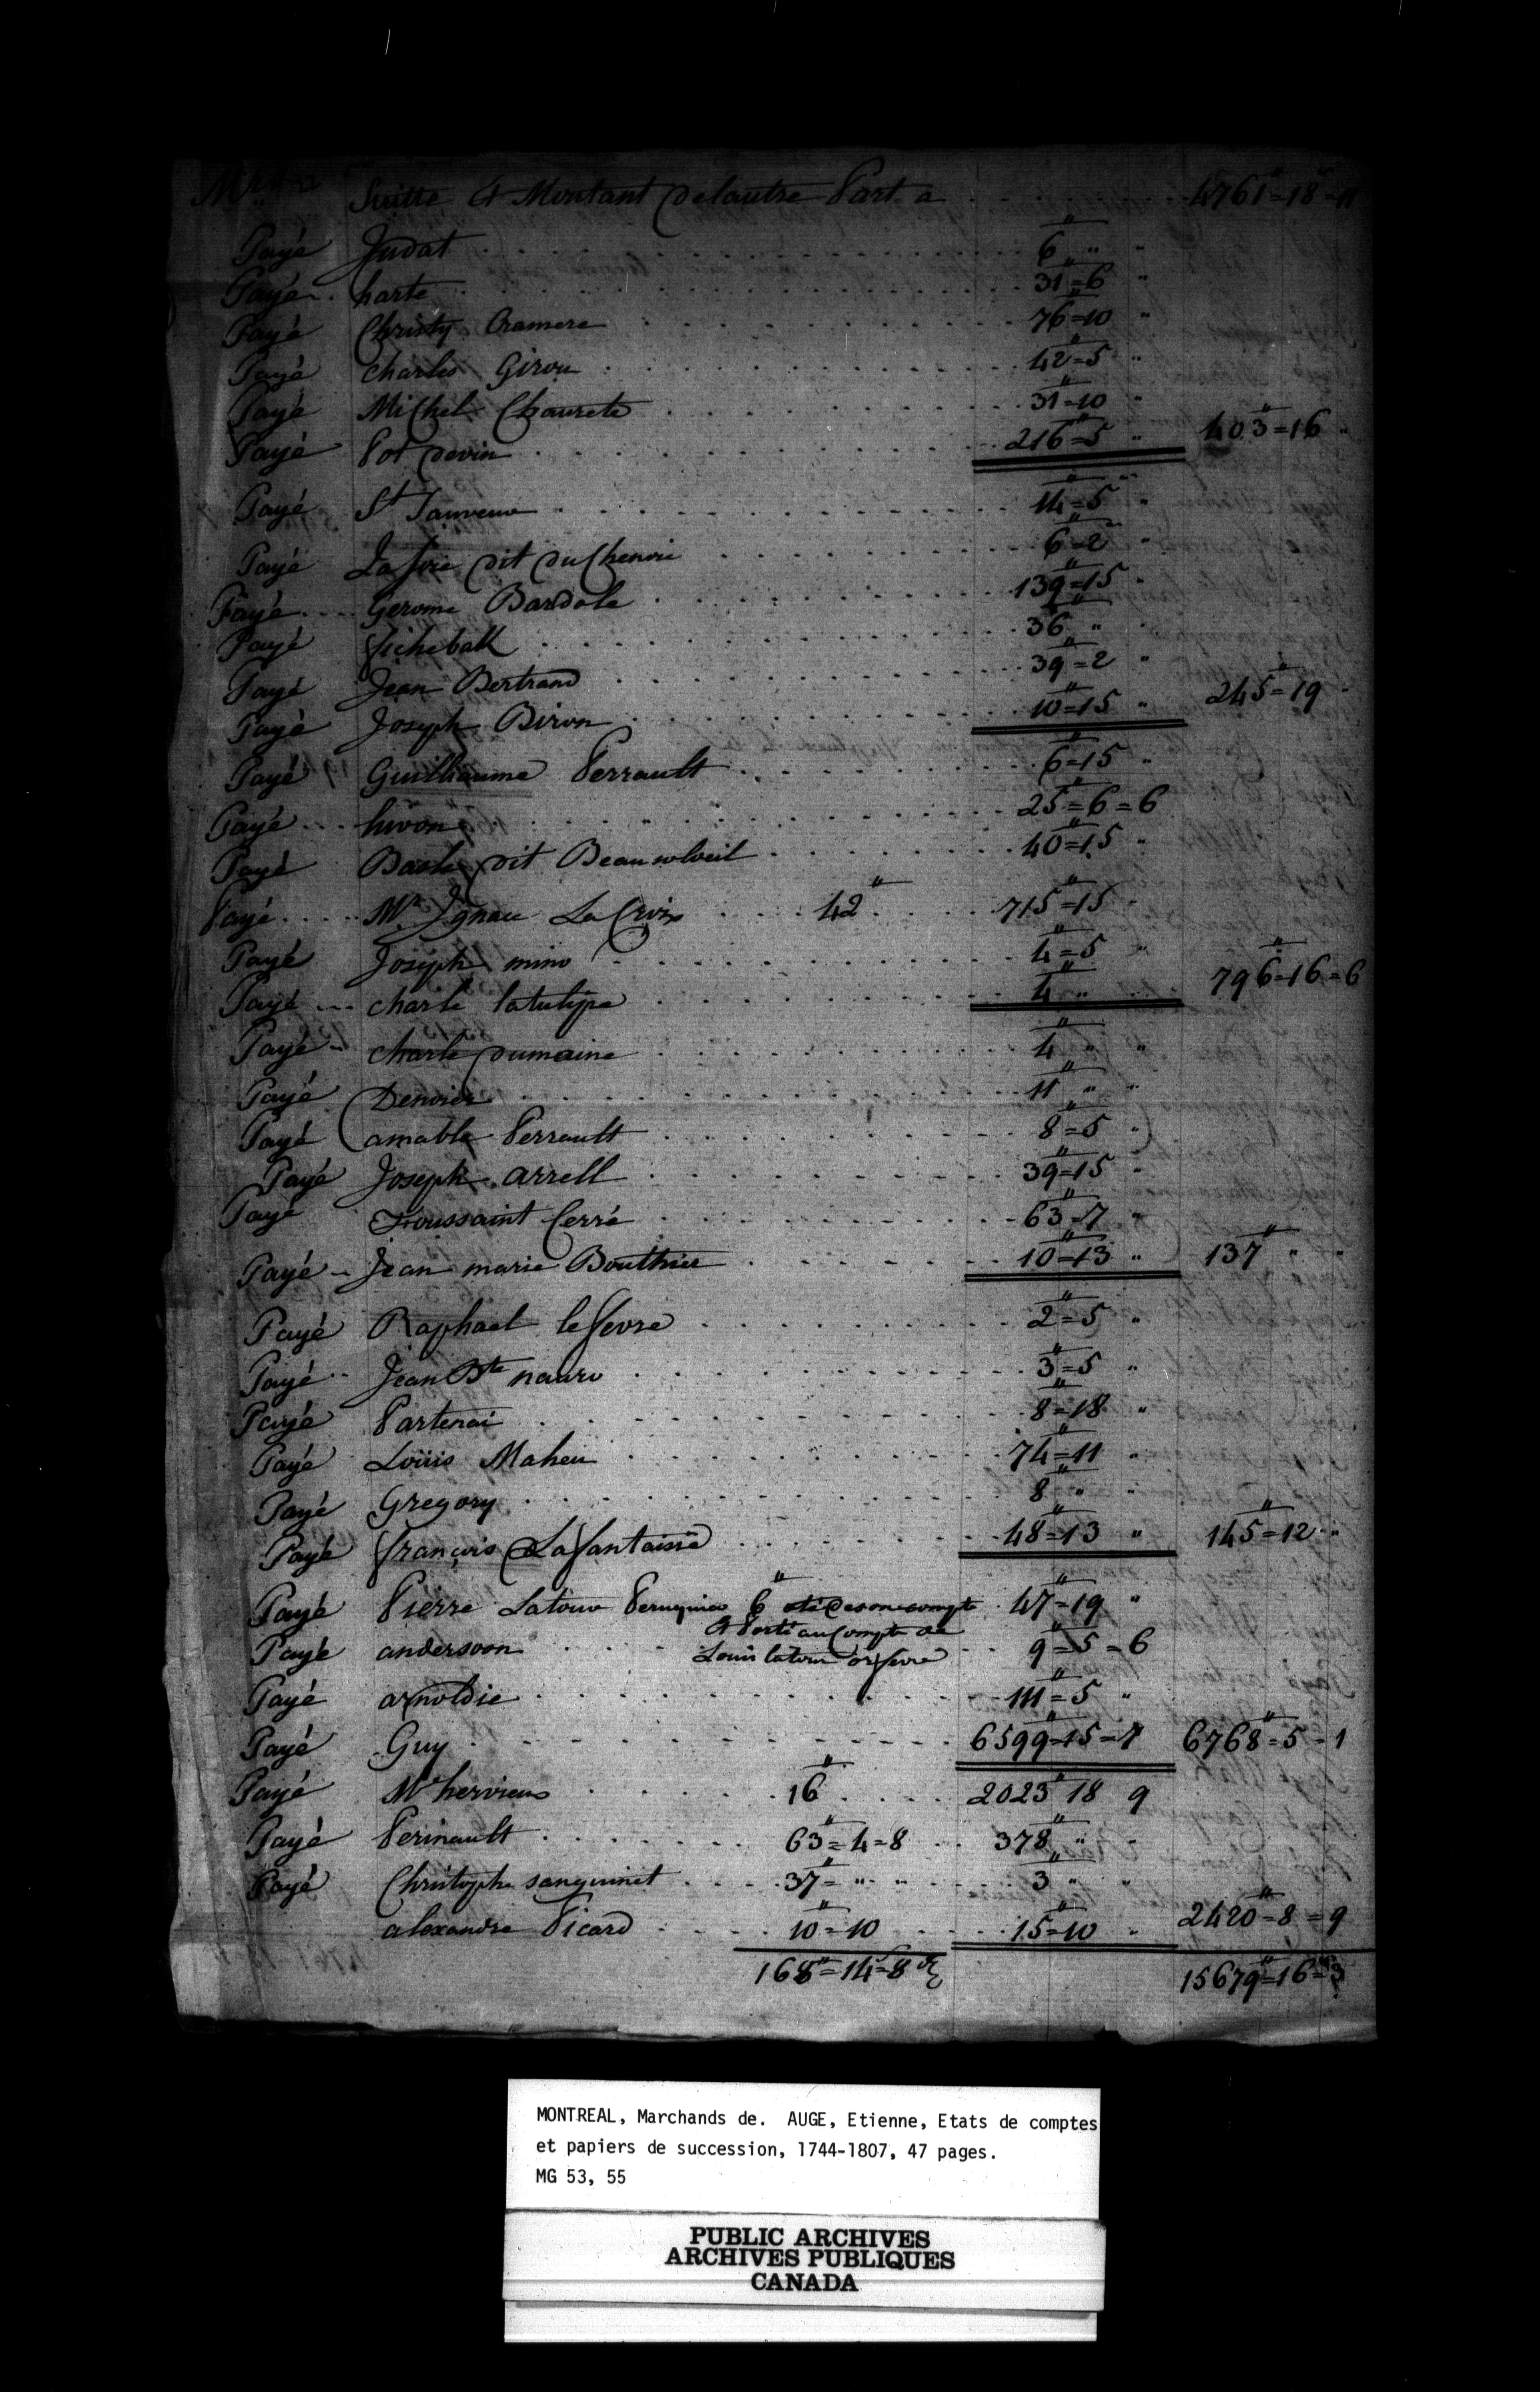 Suitte & Montant delautre Part a 4761"=18=11
Payé Judat 6 " "
Payé harte 31=6 "
Payé Christy Cramere 76=10 "
Payé Charles Girou 42=5 "
Payé Michel Chaurete 31=10 "
Payé Pot devin 216=5 " 403=16 "
Payé St Sauveur 14=5 "
Payé La foie dit du Chenoi 6=2 "
Payé Gerome Bardole 139=15 "
Payé fichebak 36 " "
Payé Jean Bertrand 39=2 "
Payé Joseph Biron 10=15 " 245=19 "
Payé Guilhaume Perrault 6=15 "
Payé hivon 25=6=6
Payé Basle dit Beausoleil 40=15 "
Payé Mr Ignace La Croix 42" 715=15 "
Payé Joseph mino 4=5 "
Payé charle latulipe 4 " " 796=16=6
Payé charle dumaine 4 " "
Payé Denoier 11 " "
Payé amable Perrault 8=5 "
Payé Joseph arrell 39=15 "
Payé Toussaint Cerré 63=7 "
Payé Jean marie Bouthier 10=13 " 137 " "
Payé Raphael lefevre 2=5 "
Payé Jean Bte nauro 3=5 "
Payé Partenai 8=18 "
Payé Loüis Maheu 74=11 "
Payé Gregory 8 " "
Payé françois Lafantaisie 48=13 " 145=12 "
Payé Pierre Latour Peruquier 6" oté de son compte 47=19 "
& Porté au Compte de
Payé andersoon Louis latour orfevre 9=5=6
Payé arnoldie 111=5 "
Payé Guy 6599=15=7 6768=5=1
Payé Mr hervieux 16" 2023" 18 9
Payé Perinault 63=4=8 378 " "
Payé Christophe sanguinet 37= " " 3 " "
alexandre Picard 10=10 15=10 " 2420=8=9
168"=14=8 15679"=16=3
MONTREAL, Marchands de. AUGE, Etienne, Etats de comptes
et papiers de succession, 1744-1807, 47 pages.
MG 53, 55
PUBLIC ARCHIVES
ARCHIVES PUBLIQUES
CANADA